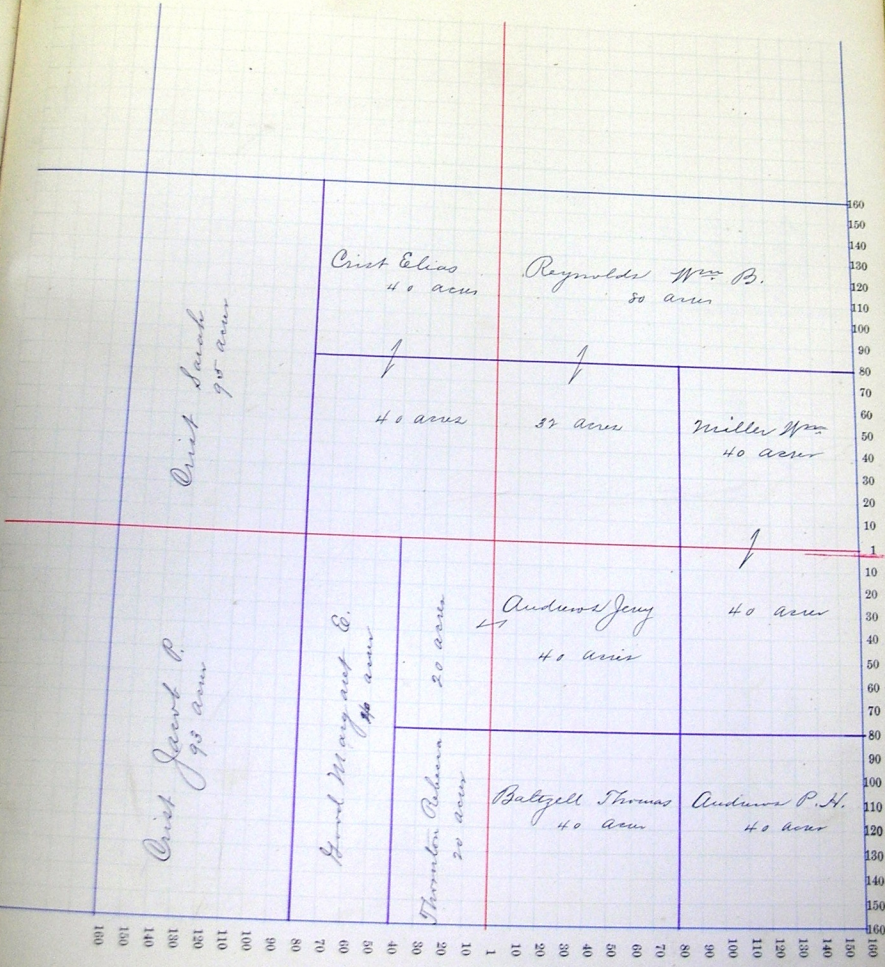 Crist Elias
40 acres
Reynolds Wm B.
80 acres
Crist Sarah
95 acres
40 acres
32 acres
Miller Wm
40 acres
Crist Jacob P.
93 acres
Good Margaret E.
acres
20 acres
Andrews Jerry
40 acres
40 acres
Thornton Rebecca
20 acres
Baltzell Thomas
40 acres
Andrews P. H.
40 acres
160
150
140
130
120
110
100
90
80
70
60
50
40
30
20
10
1
10
20
30
40
50
60
70
80
90
100
110
120
130
140
150
160
160 150 140 130 120 110 100 90 80 70 60 50 40 30 20 10 1 10 20 30 40 50 60 70 80 90 100 110 120 130 140 150 160